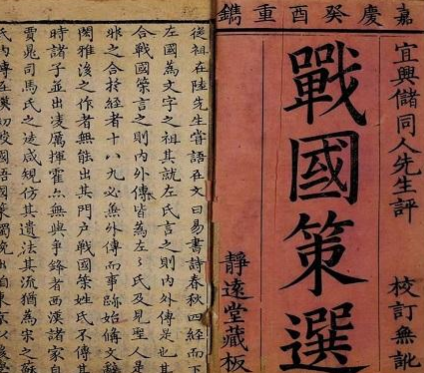 嘉慶癸酉重鐫
宜興儲同人先生評
校訂無訛
戰國策選
靜遠堂藏板
從祖在陸先生嘗語在文曰易書詩春秋四經而下
左國為文字之祖其就左氏言之則內外傳是也其
合戰國策言之則內外傳皆為左氏及見聖人是
邪之合於經者十八九必無外傳而事跡始備文辭
閎雅後之作者無能出其門戶戰國策姓氏不傳其
時諸子並出凌厲揮霍亦無與爭鋒者西漢諸家自
賈晁司馬氏之徒咸規仿其遺法其流猶為宋之蘇